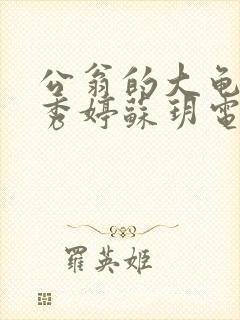 公翁的大龟
秀婷蘇玥電
羅英姬